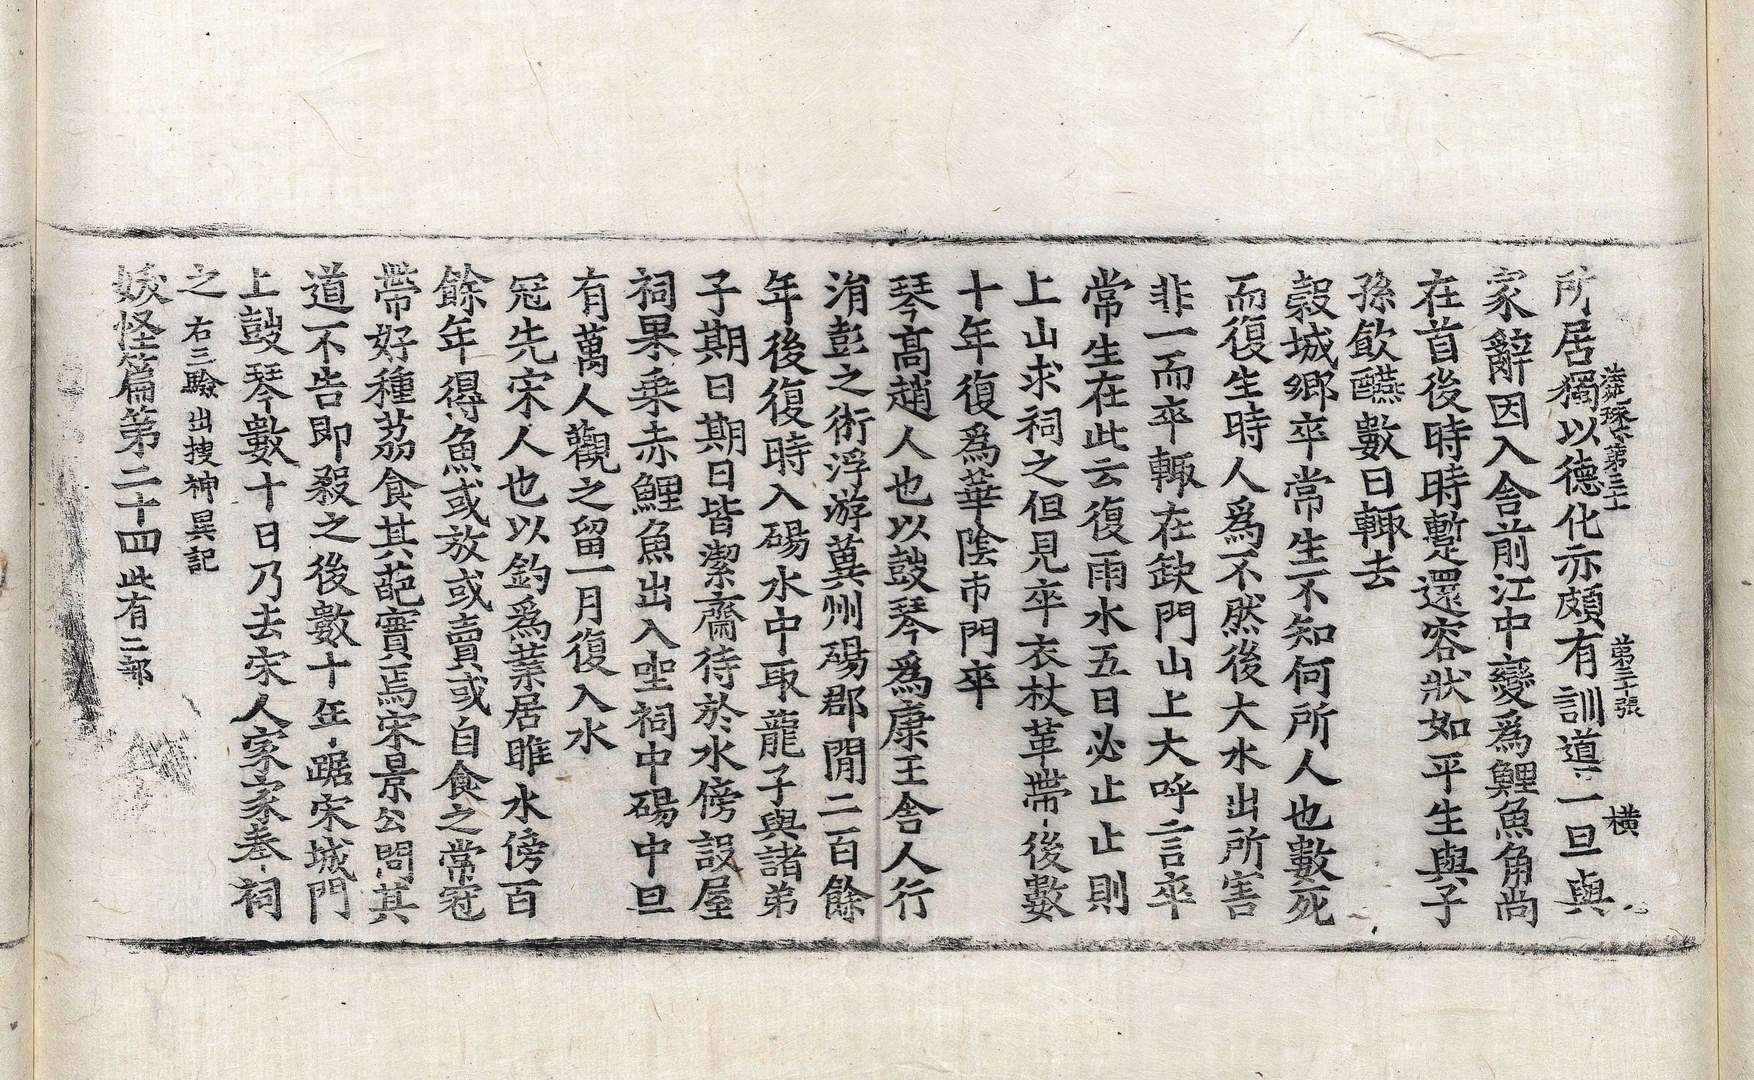 法苑珠林第三十一 第三十張 橫
所居獨以德化亦頗有訓道一旦與
家辭因入舍前江中變爲鯉魚角尚
在首後時時暫還容狀如平生與子
孫飲醼數日輒去
穀城鄉卒常生不知何所人也數死
而復生時人爲不然後大水出所害
非一而卒輒在缺門山上大呼言卒
常生在此云復雨水五日必止止則
上山求祠之但見卒衣杖革帶後數
十年復爲華陰市門卒
琴高趙人也以鼓琴爲康王舍人行
涓彭之術浮游兾州碭郡閒二百餘
年後復時入碭水中取龍子與諸弟
子期日期日皆潔齋待於水傍設屋
祠果乘赤鯉魚出入坐祠中碭中旦
有萬人觀之留一月復入水
冦先宋人也以釣爲業居睢水傍百
餘年得魚或放或賣或自食之常冠
帶好種荔食其葩實焉宋景公問其
道不告即殺之後數十年踞宋城門
上鼓琴數十日乃去宋人家家奉祠
之 右三驗出搜神異記
妖怪篇第二十四 此有二部